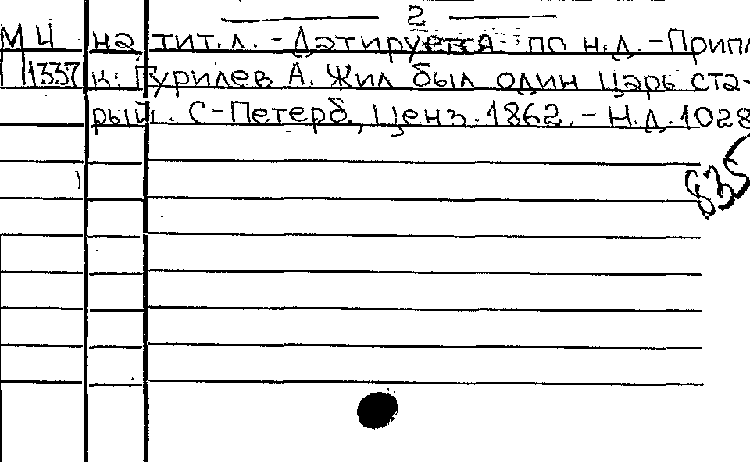 2
МЦ на тит.л. - Датируется по н.д. - Припл
П1337 к: Гурилев А. Жил был один царь ста-
рый. С-Петерб., Ценз. 1862. - Н.д. 1028
835